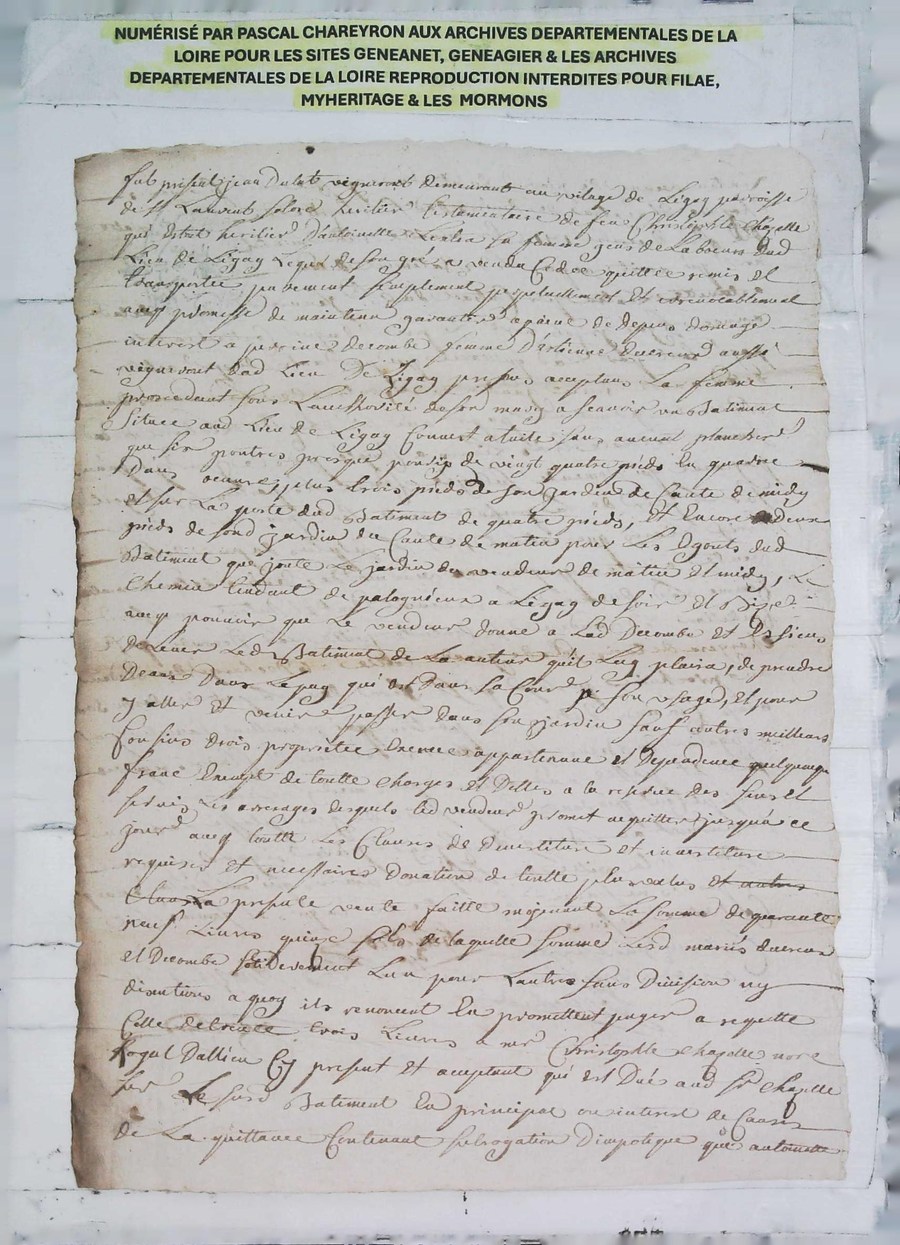 NUMÉRISÉ PAR PASCAL CHAREYRON AUX ARCHIVES DEPARTEMENTALES DE LA
LOIRE POUR LES SITES GENEANET, GENEAGIER & LES ARCHIVES
DEPARTEMENTALES DE LA LOIRE REPRODUCTION INTERDITES POUR FILAE,
MYHERITAGE & LES MORMONS
fut présent jean vigneront demeurant au vilage de Ligay parroisse
de st Laurent heritier testamentaire de feu Christophle chapelle
qui estoit heritier d'antoinette sa femme de Laboeurs dud
Lieu de Ligay Lequel de son gré a vendu Cedé quitté remis et
transporté purement simplement perpetuellement et irrevocablement
avecq promesse de maintenir garantir a peine de depens domage
interest a decombe femme d'estienne aussi
vigneront dud Lieu De Ligay acceptans La femme
proscedant sous L'authorité de son mary a scavoir un Batiment
Situee aud Lieu de Ligay Couvert a tuile sans aucunt plancher
que six poutres presque de vingt quatre pieds En quarré
Dans oeuvre, plus trois pieds de son jardin de Cauté de midy
et sur La porte dud Batiment de quatre pieds, et Encore deux
pieds de sond jardin du Cauté de matin pour Les Egouts dud
Batiment que joute Le jardin du vendeur de matin et midy, Le
Chemin tendant de palognieux a Ligay de soir et Bize
avecq pouvoir que Le vendeur donne a Lad Decombe et Es siens
de Lever Led Batiment de La auteur qu'il Luy plaira, de prendre
Deaux Dans Lepuy qui est Dans sa Cour pr son usage, et pour
y aller et venir passer dans son jardin sauf autres meilleurs
Confins drois proprietée Entrée appartenance et Dependence quelquonque
franc Exempt de toutte charges et Dettes a la reserve des sens et
servis Les arrerages desquels led vendeur promet acquitter jusqua ce
jour avecq toutte Les Clauses de Devestiture et investiture
requises et necessaires Donation de toutte plus values et autres
Clauses La presente vente faitte moyenant La somme de quarante
neuf Livres quinse sols de laquelle somme Lesd mariés
et Decombe solidairement L'un pour L'autre sans Division ny
discutions a quoy ils renoncent En promettent payer a requette
Celle de trente trois Livres a mr Christophle chapelle nore
Royal Dallieu Cy present et acceptant qui est Düe aud sr chapelle
sur Le susd Batiment En principal ou interest de Cause
de La quittance Contenant subrogation D'impoteque que antoinette